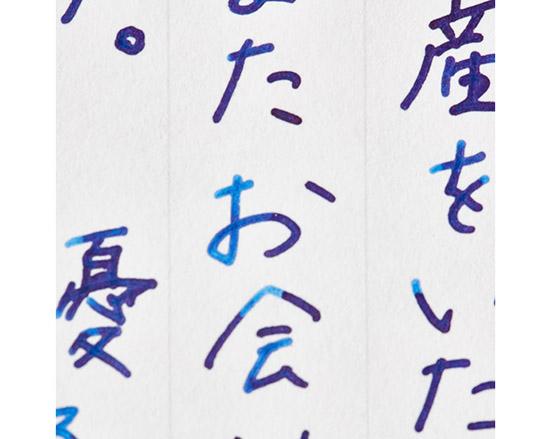 産をいた
またお会
。憂